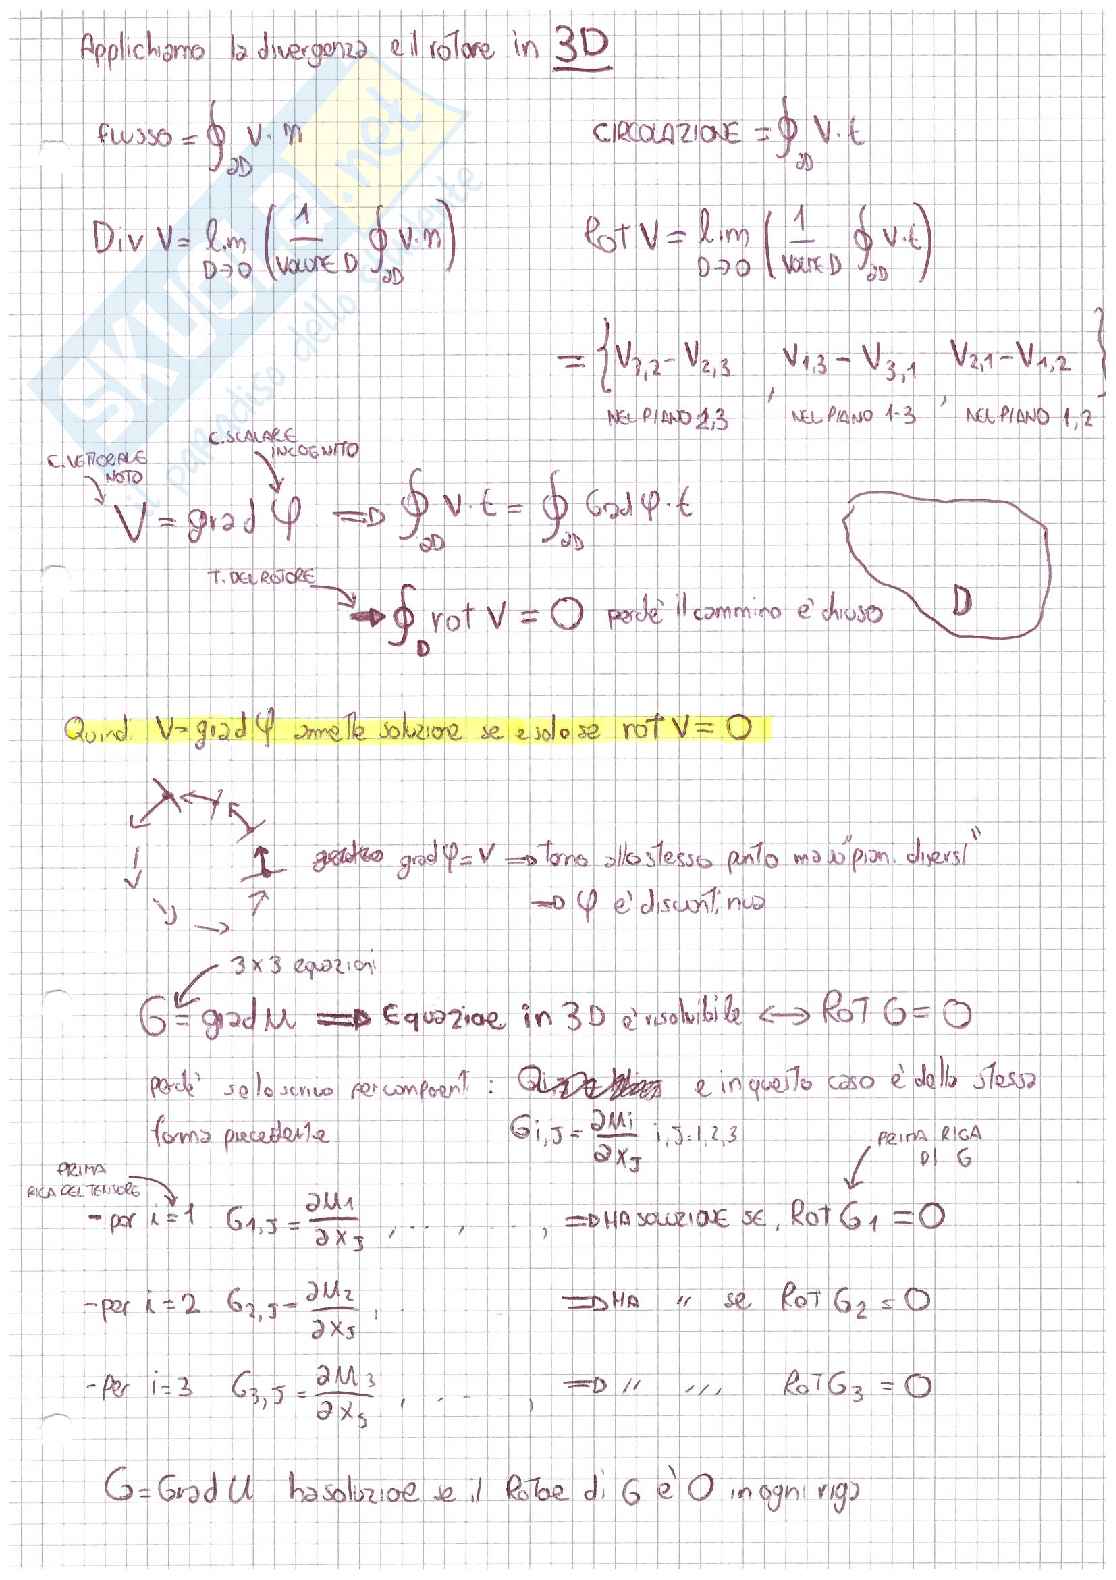 Applichiamo la divergenza e il rotore in 3D
FLUSSO = ∮∂D V·n CIRCOLAZIONE = ∮∂D V·t
Div V = lim D→0 (1/VOLUME D ∮∂D V·n) Rot V = lim D→0 (1/VOLUME D ∮∂D V·t)
= {V3,2 - V2,3 , V1,3 - V3,1 , V2,1 - V1,2}
NEL PIANO 2,3 NEL PIANO 1-3 NEL PIANO 1,2
C. SCALARE INCOGNITO
C. VETTORALE NOTO
V = grad φ ⇒ ∮∂D V·t = ∮∂D Grad φ·t
T. DEL ROTORE
⇒ ∮D rot V = 0 perchè il cammino è chiuso
D
Quindi V = grad φ ammette soluzione se e solo se rot V = 0
grad φ = V ⇒ torno allo stesso punto ma su "piani diversi"
⇒ φ è discontinua
3x3 equazioni
G = grad u ⇒ Equazione in 3D è risolvibile ↔ ROT G = 0
perchè se lo scrivo per componenti : e in questo caso è della stessa
forma precedente Gi,J = ∂ui/∂xJ i,J=1,2,3
PRIMA RIGA DI G
PRIMA RIGA DEL TENSORE
- per i=1 G1,J = ∂u1/∂xJ , .. , .. , ⇒ HA SOLUZIONE SE, ROT G1 = 0
- per i=2 G2,J = ∂u2/∂xJ , ⇒ HA " se ROT G2 = 0
- Per i=3 G3,J = ∂u3/∂xJ , .. , ⇒ " " ROT G3 = 0
G = Grad U ha soluzione se il Rotore di G è 0 in ogni riga
SKUOLA.net
il paradiso dello studente